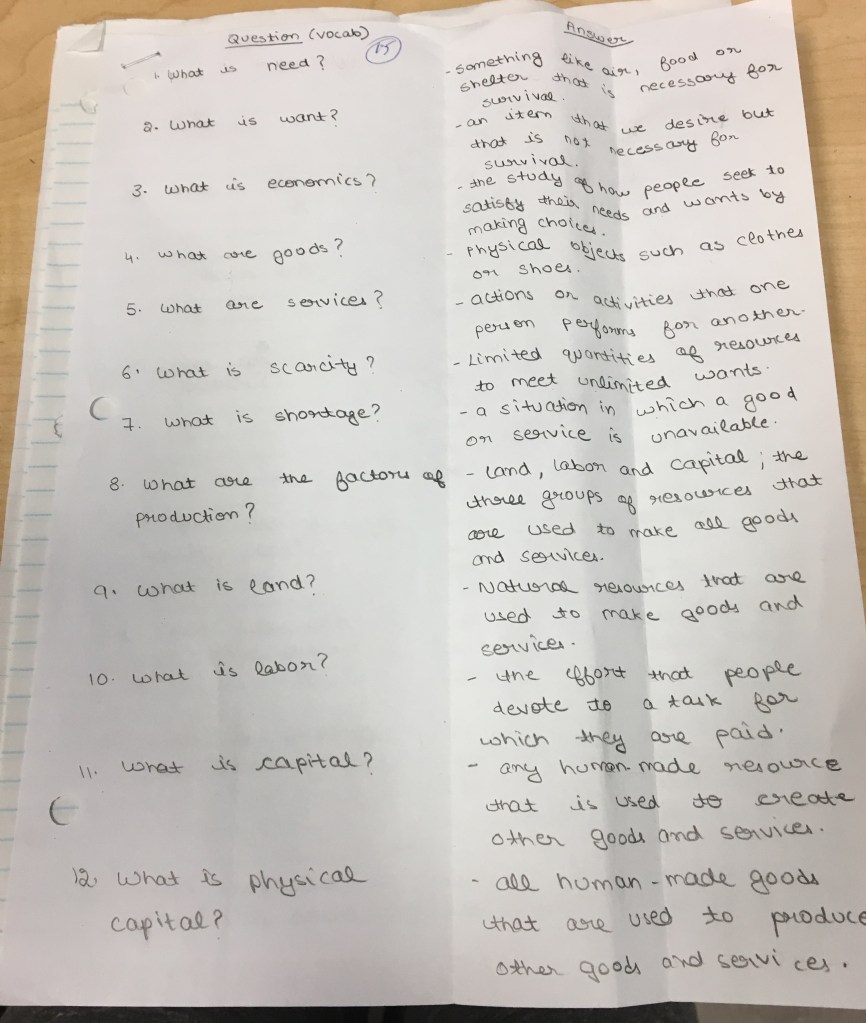 Question (vocab)
15
Answer
1. What is need?
- something like air, food or
shelter that is necessary for
survival.
2. What is want?
- an item that we desire but
that is not necessary for
survival.
3. What is economics?
- the study of how people seek to
satisfy their needs and wants by
making choices.
4. What are goods?
- Physical objects such as clothes
or shoes.
5. What are services?
- actions or activities that one
person performs for another.
6. What is scarcity?
- Limited quantities of resources
to meet unlimited wants.
7. What is shortage?
- a situation in which a good
or service is unavailable.
8. What are the factors of
production?
- Land, labor and capital; the
three groups of resources that
are used to make all goods
and services.
9. What is land?
- Natural resources that are
used to make goods and
services.
10. What is labor?
- the effort that people
devote to a task for
which they are paid.
11. What is capital?
- any human-made resource
that is used to create
other goods and services.
12. What is physical
capital?
- all human-made goods
that are used to produce
other goods and services.